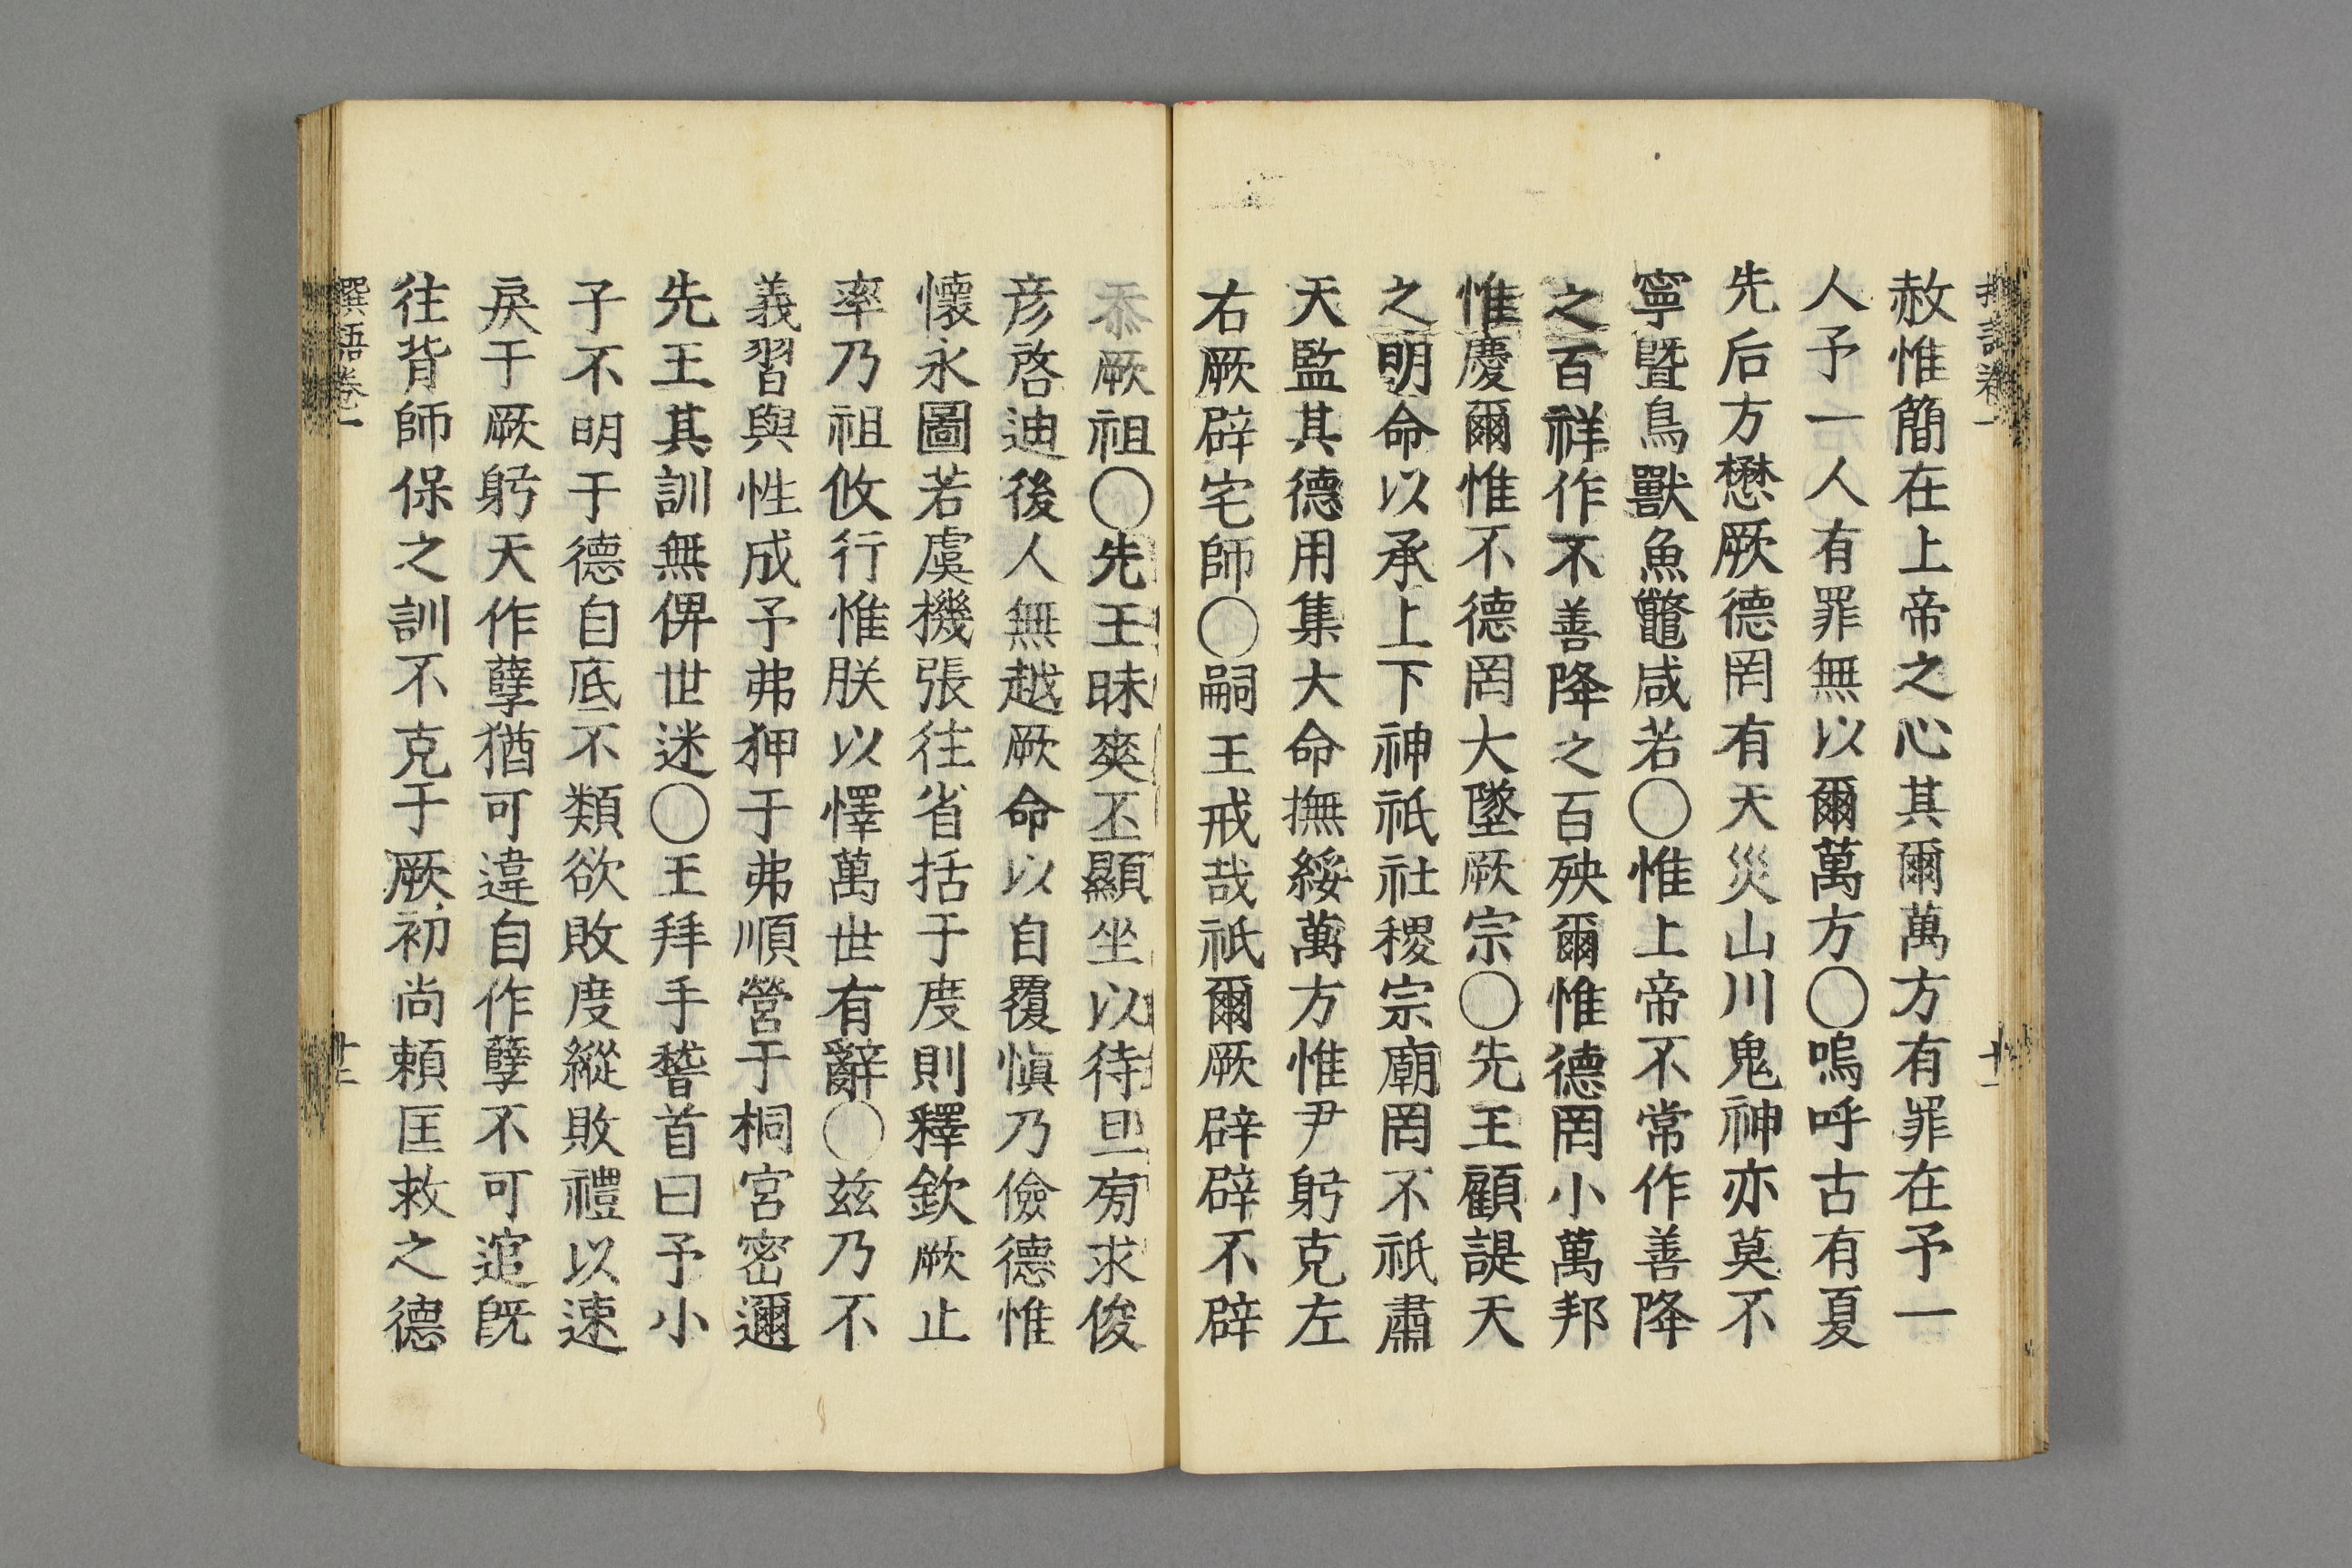 赦惟簡在上帝之心其爾萬方有罪在予一
人予一人有罪無以爾萬方○嗚呼古有夏
先后方懋厥德罔有天災山川鬼神亦莫不
寧曁鳥獸魚鼈咸若○惟上帝不常作善降
之百祥作不善降之百殃爾惟德罔小萬邦
惟慶爾惟不德罔大墜厥宗○先王顧諟天
之明命以承上下神祇社稷宗廟罔不祗肅
天監其德用集大命撫綏萬方惟尹躬克左
右厥辟宅師○嗣王戒哉祗爾厥辟辟不辟
忝厥祖○先王昧爽丕顯坐以待旦旁求俊
彦啓迪後人無越厥命以自覆愼乃儉德惟
懷永圖若虞機張往省括于度則釋欽厥止
率乃祖攸行惟朕以懌萬世有辭○茲乃不
義習與性成予弗狎于弗順營于桐宮密邇
先王其訓無俾世迷○王拜手稽首曰予小
子不明于德自底不類欲敗度縱敗禮以速
戾于厥躬天作孽猶可違自作孽不可逭既
往背師保之訓不克于厥初尚賴匡救之德
撰語卷一